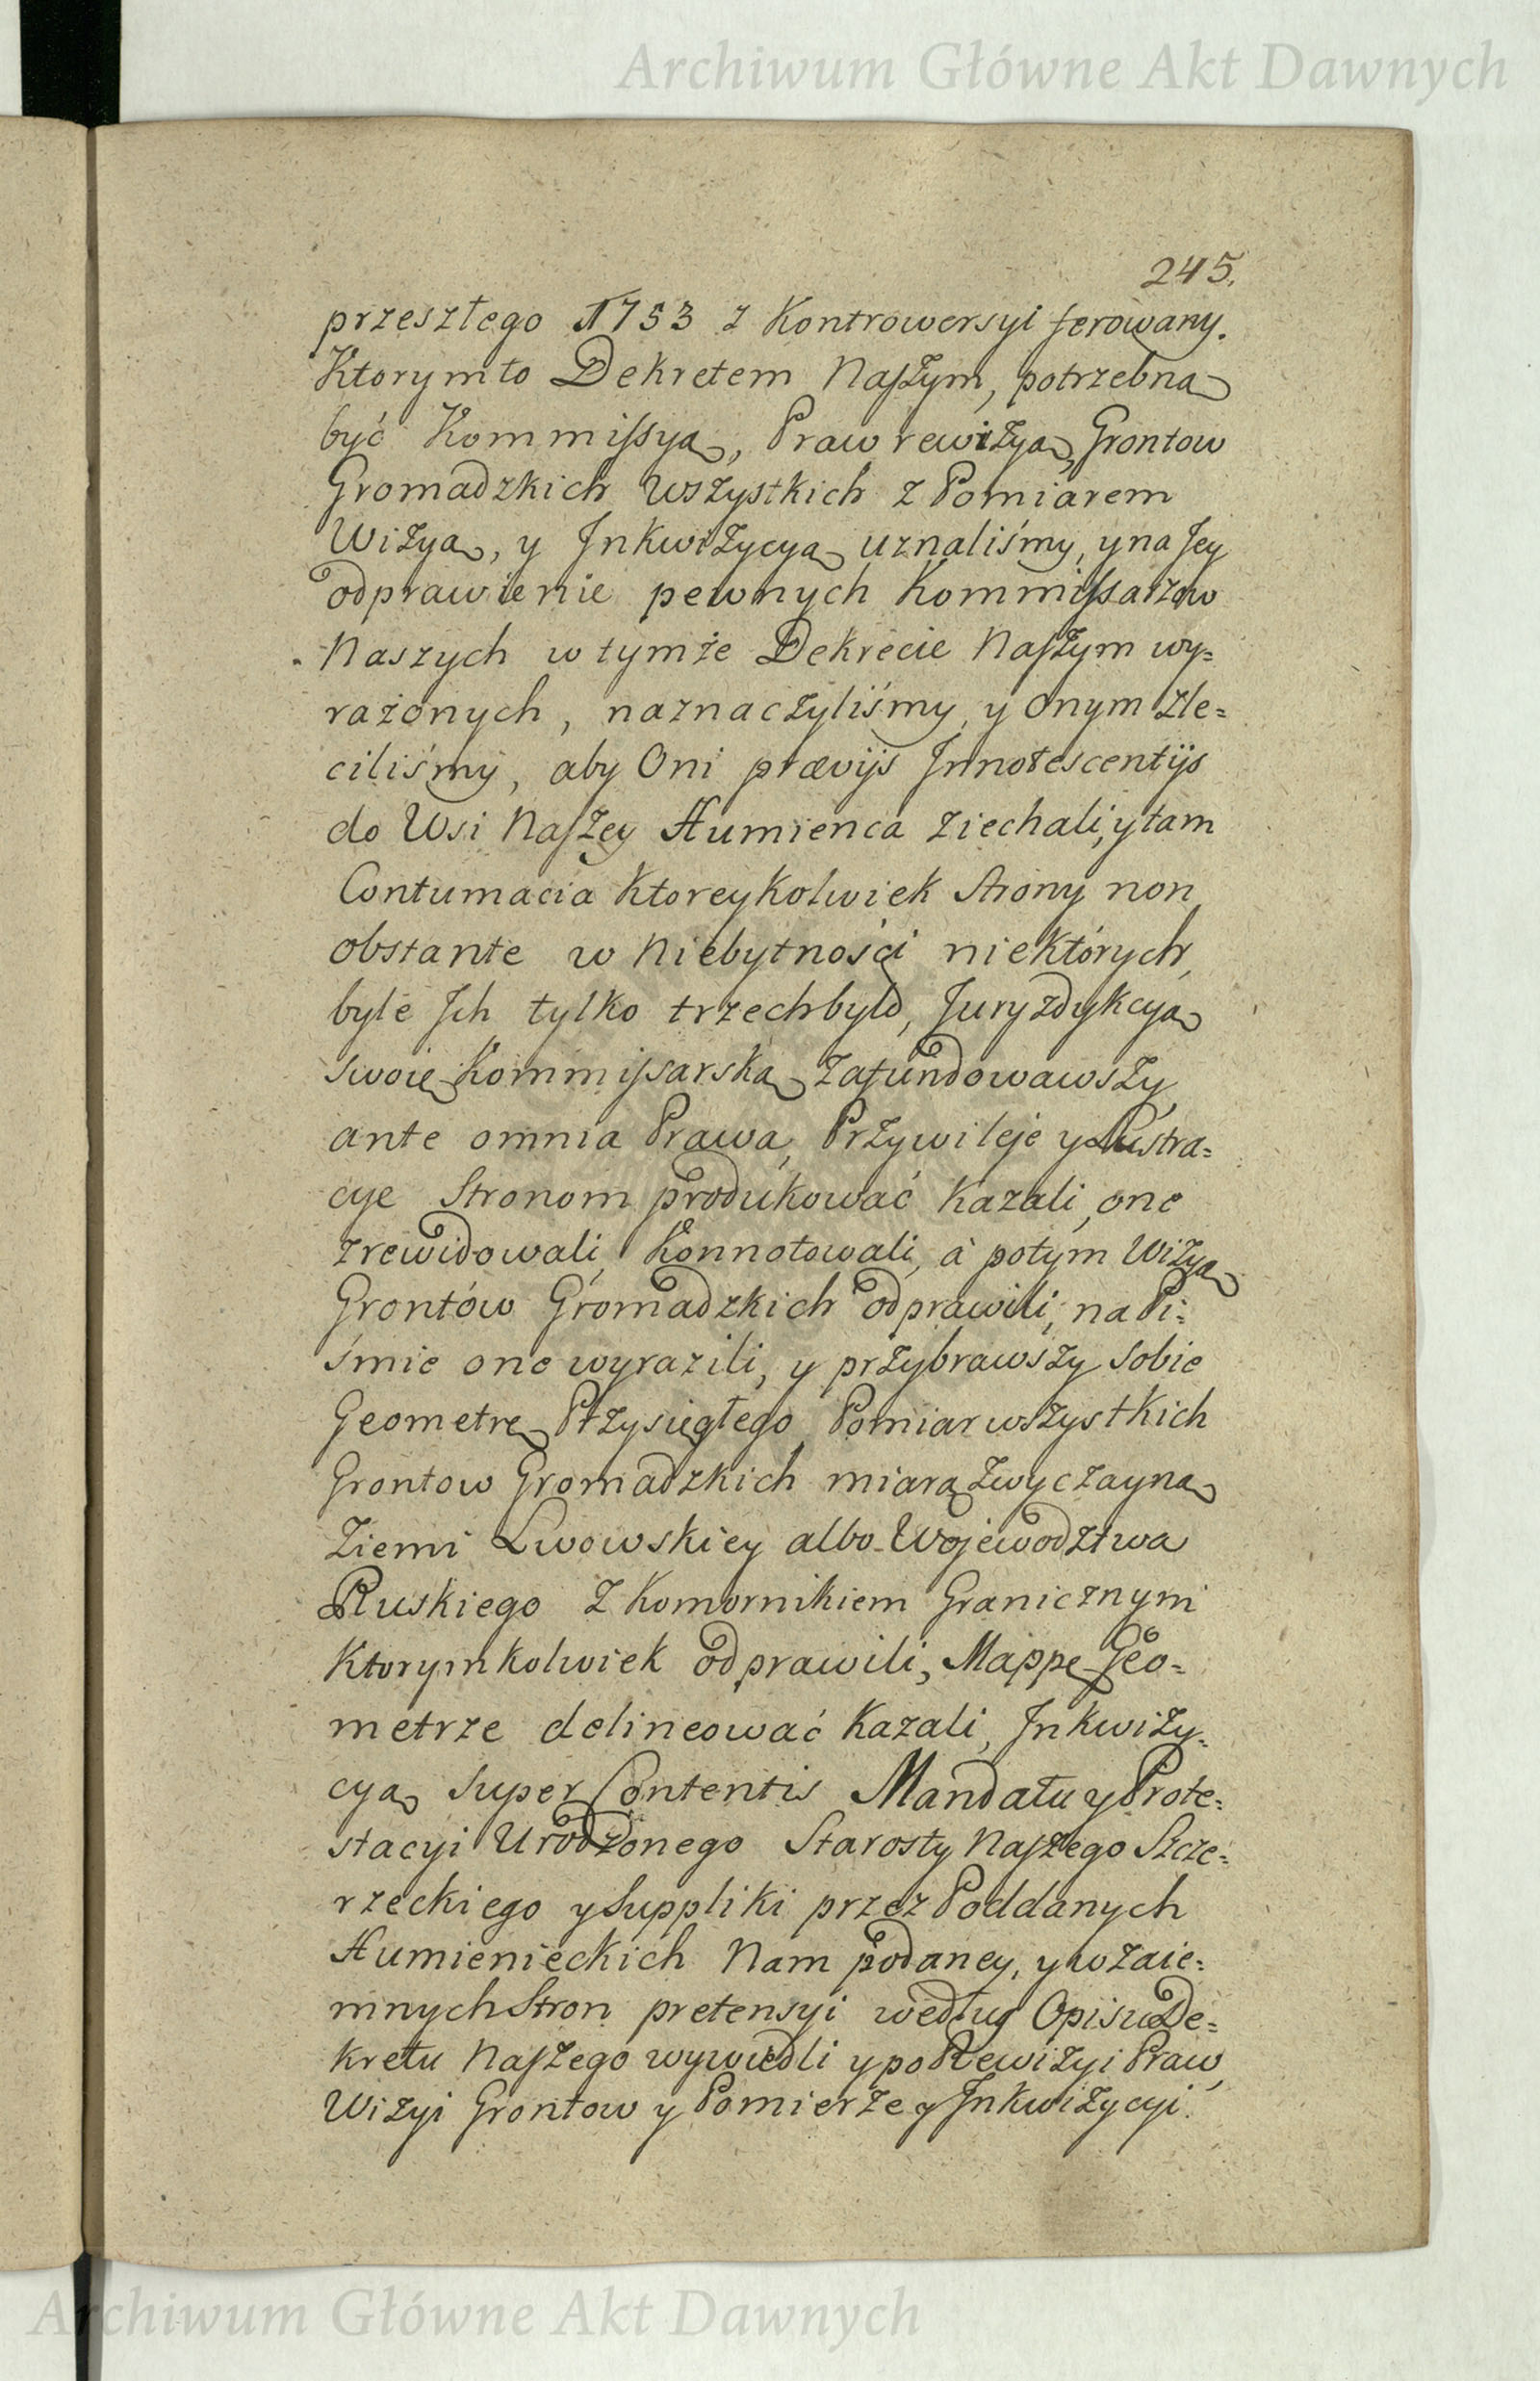 Archiwum Główne Akt Dawnych
245.
przeszłego 1753 z Kontrowersyi ferowany.
Ktorymto Dekretem Naszym, potrzebną
być Kommissyą, Praw rewizyą, Grontow
Gromadzkich wszystkich z Pomiarem
Wizyą, y Jnkwizycyą uznaliśmy, y na Jey
odprawienie pewnych Kommissarzow
Naszych w tymże Dekrecie Naszym wy=
rażonych, naznaczyliśmy, y Onym zle=
ciliśmy, aby Oni prævijs Jnnotescentijs
do Wsi Naszey Humienca ziechali, y tam
Contumacia Ktoreykolwiek Strony non
obstante w Niebytności niektórych,
byle Jch tylko trzech było, Juryzdykcyą
swoię Kommissarską zafundowawszy,
ante omnia Prawa, Przywileje y Lustra=
cye Stronom produkować kazali, one
zrewidowali, Konnotowali, à potym Wizyą
Grontów Gromadzkich odprawili, na Pi=
śmie one wyrazili, y przybrawszy sobie
Geometrę Przysięgłego, Pomiar wszystkich
Grontow Gromadzkich miarą zwyczayną
Ziemi Lwowskiey albo Wojewodztwa
Ruskiego z Komornikiem Granicznym
Ktorymkolwiek odprawili, Mappę Geo=
metrze delineować kazali, Jnkwizy=
cyą super Contentis Mandatu y Prote=
stacyi Urodzonego Starosty Naszego Szcze=
rzeckiego y Suppliki przez Poddanych
Humienieckich Nam podaney, y wzaie=
mnych Stron pretensyi według Opisu De=
kretu Naszego wywiedli y po Rewizyi Praw,
Wizyi Grontow y Pomierze y Jnkwizycyi.
Archiwum Główne Akt Dawnych